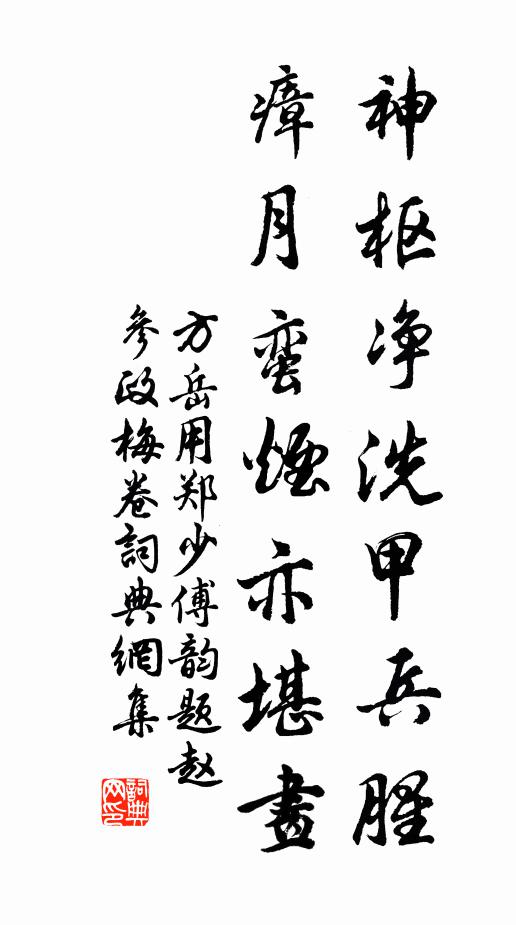 神枢净洗甲兵腥
瘴月蛮煙亦堪畫
方岳用郑少傅韵题赵
參政梅卷詞典網集
詞典网印